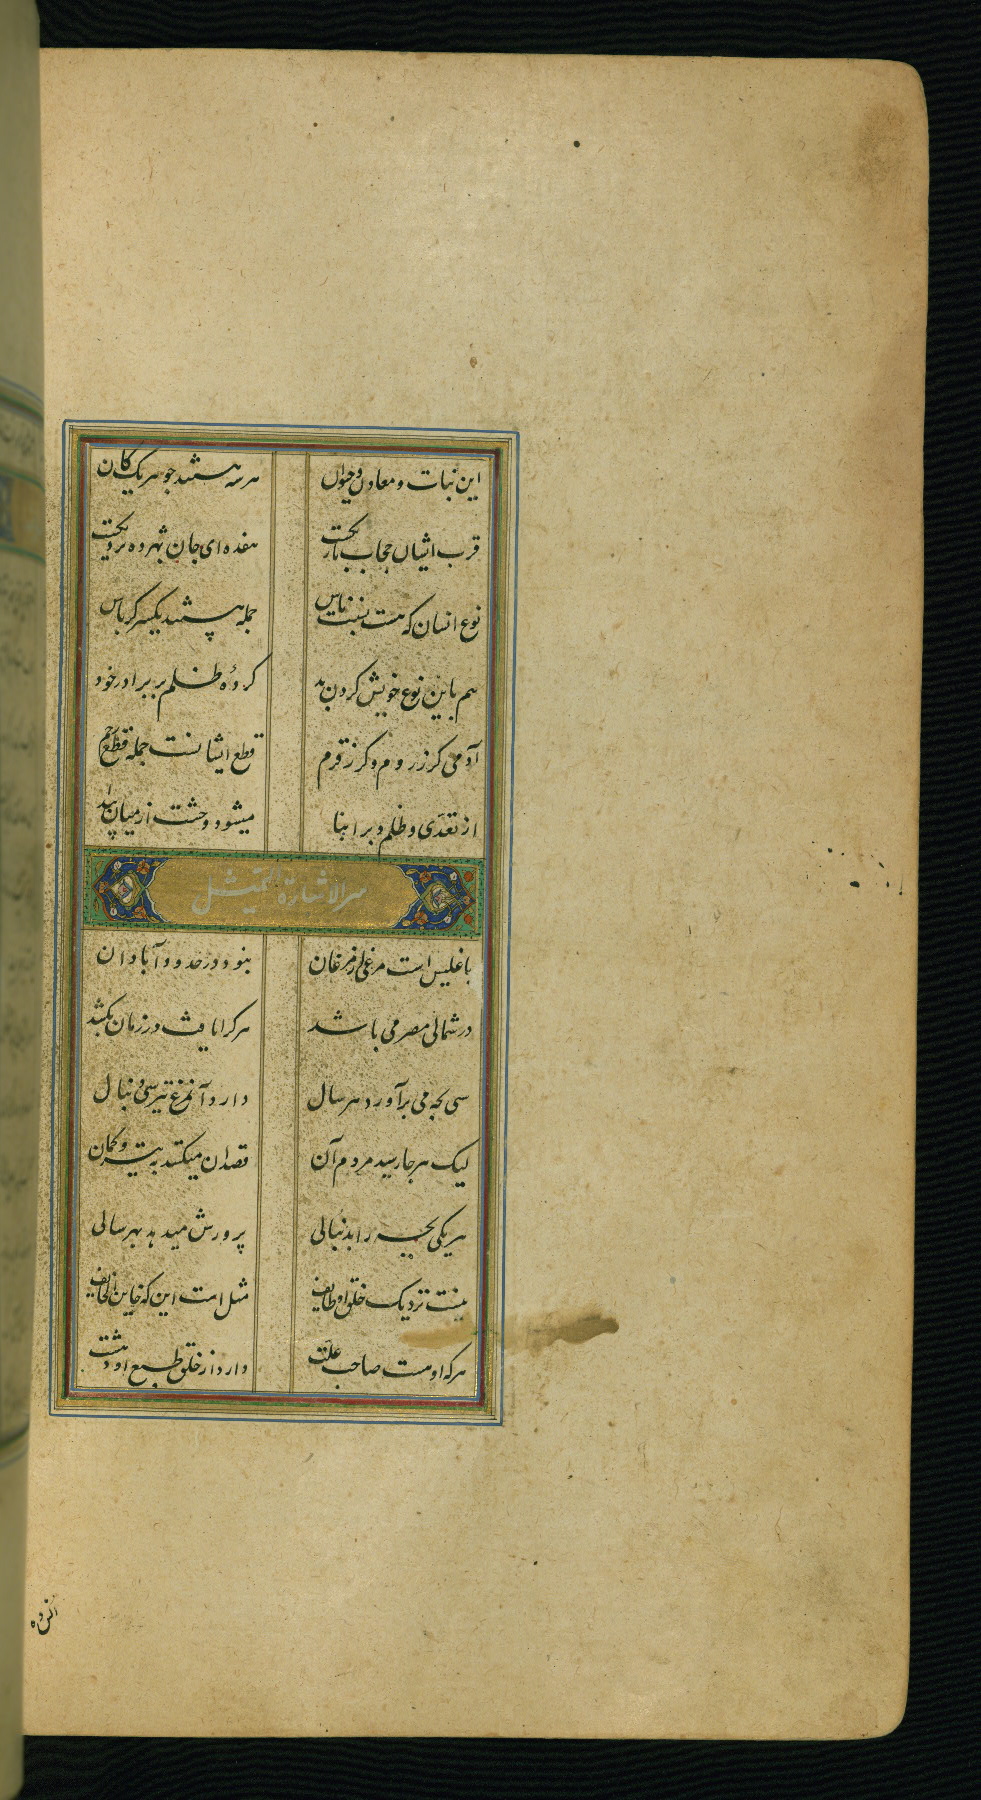 این نبات و معادن و حیوان هر سه هستند جوهر یک کان
قرب ایشان حجاب هفده ای جان شهر ده برد
نوع انسان که هست جمله هستند یکسر کرباس
هم باین نوع خویش کردن بد کرده ظلم بر برادر خود
آدمی کر ز روم و کر ز قرم قطع ایشانست جمله قطع رحم
از تعدی و ظلم و بر ابنا میشود وحشت از میان
سر الاشارة التمثیل
باغلیس است مرغی از مرغان بنود در حدود آبادان
در شمالی مصر می باشد هر کرا یافت در زمان بکشد
سی بچه می برآورد هر سال دارد آنمرغ تیر سی دنبال
لیک هر جا رسید مردم آن قصد ان میکنند به تیر و کمان
هر یکی بچه را بدنبالی پرورش میدهد بهر سالی
نیست نزدیک خلق او طایف مثل است این که خاین الخایف
هر که او هست صاحب علت دارد از خلق طبع او دهشت